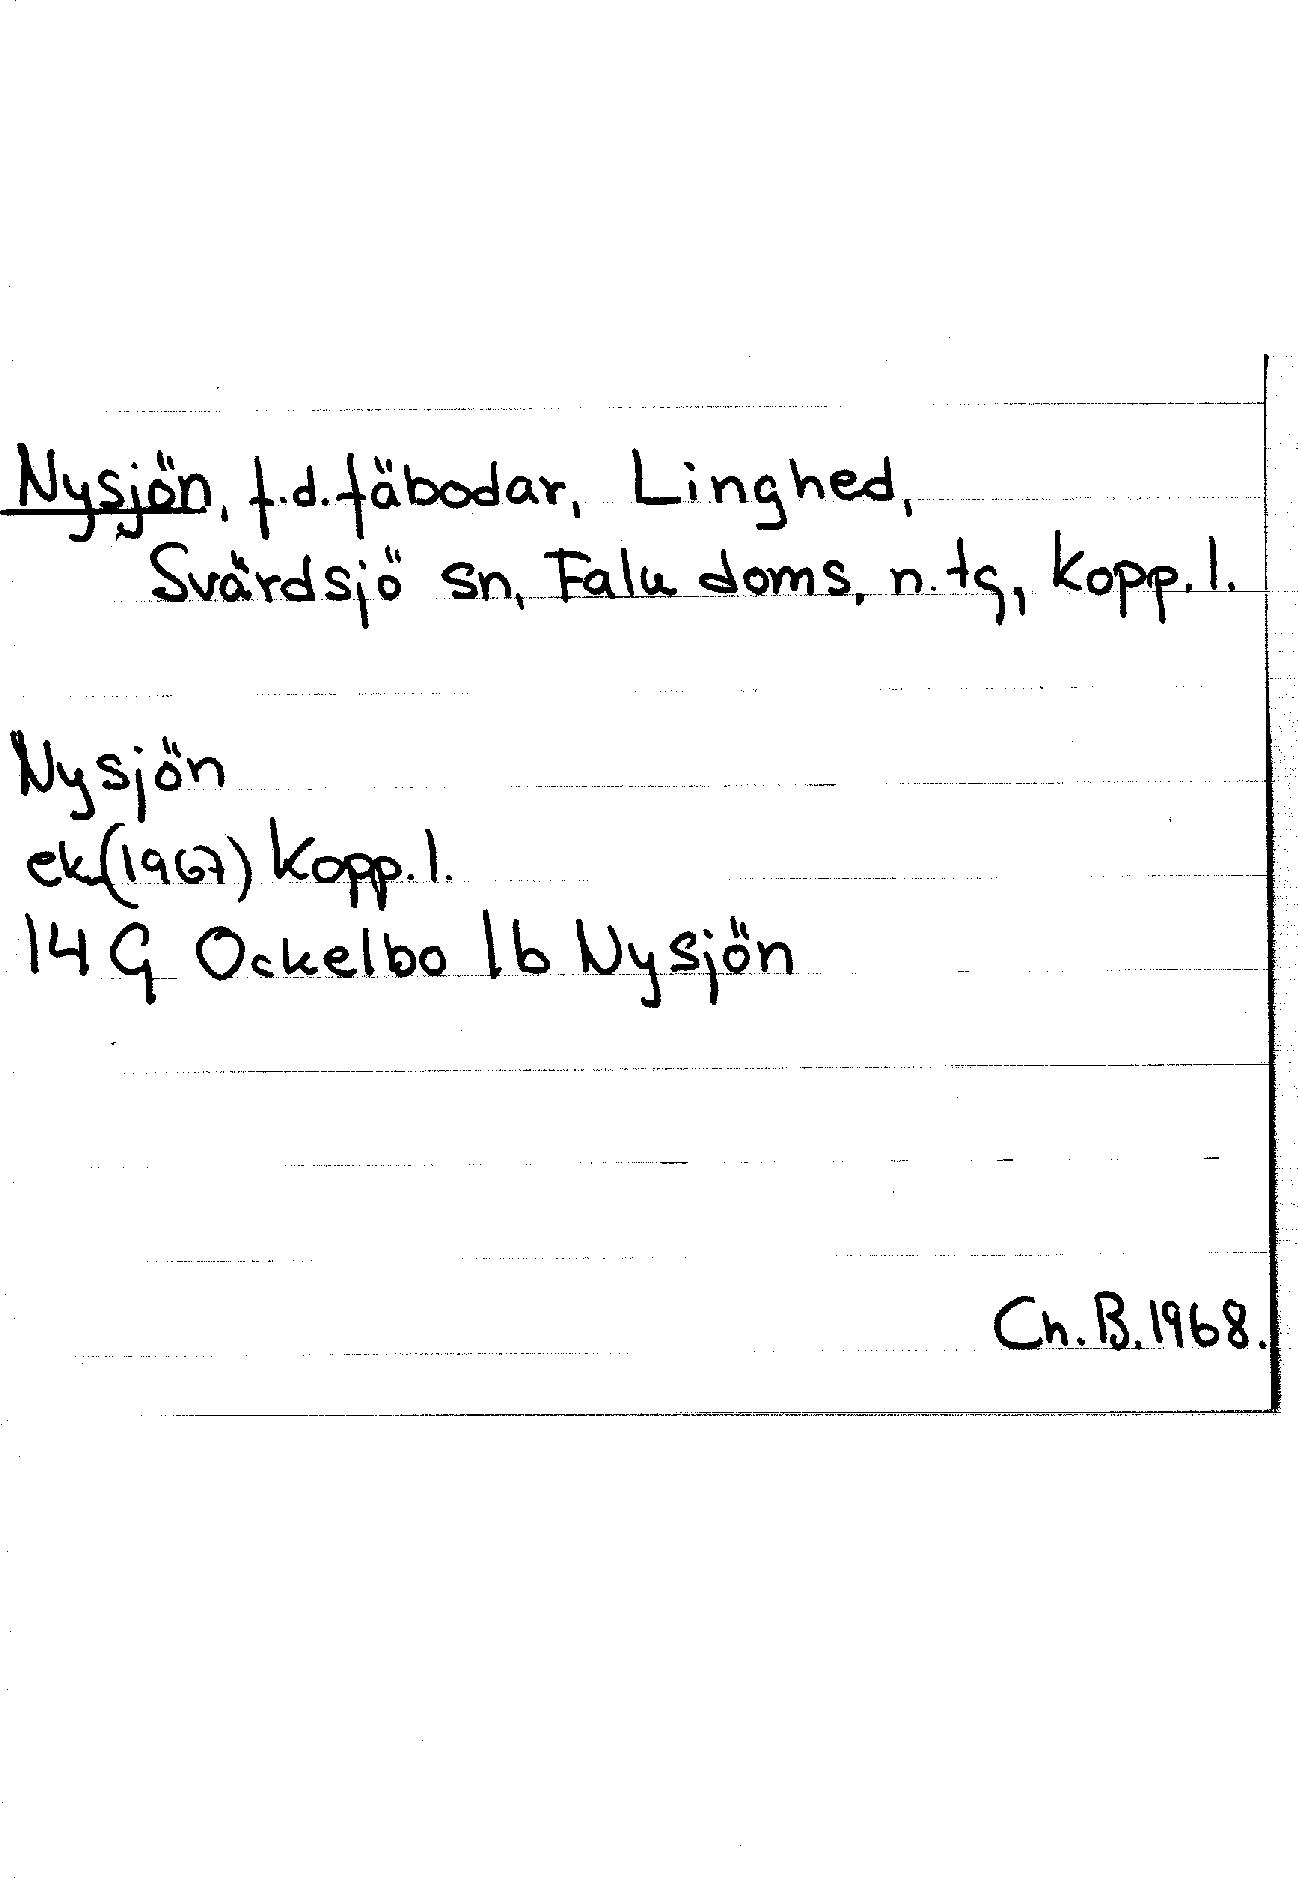 Nysjön, f.d. fäbodar, Linghed,
Svärdsjö sn, Falu doms. n. tg, Kopp. l.
Nysjön
ek (1967) Kopp. l.
14 G Ockelbo 1b Nysjön
Ch. B. 1968.